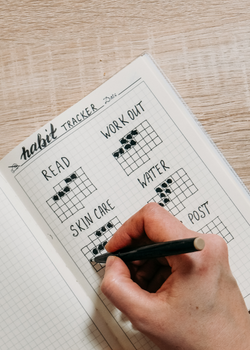 habit TRACKER Date:
READ
WORK OUT
SKIN CARE
WATER
POST